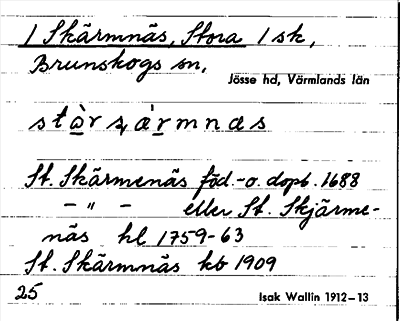 / Skärmnäs, Stora / sk,
Brunskogs sn,
Jösse hd, Värmlands län
St. Skärmenäs föd.-o. dopb. 1688
— " — eller St. Skjärme-
näs hl 1759-63
St. Skärmnäs kb 1909
25
Isak Wallin 1912-13